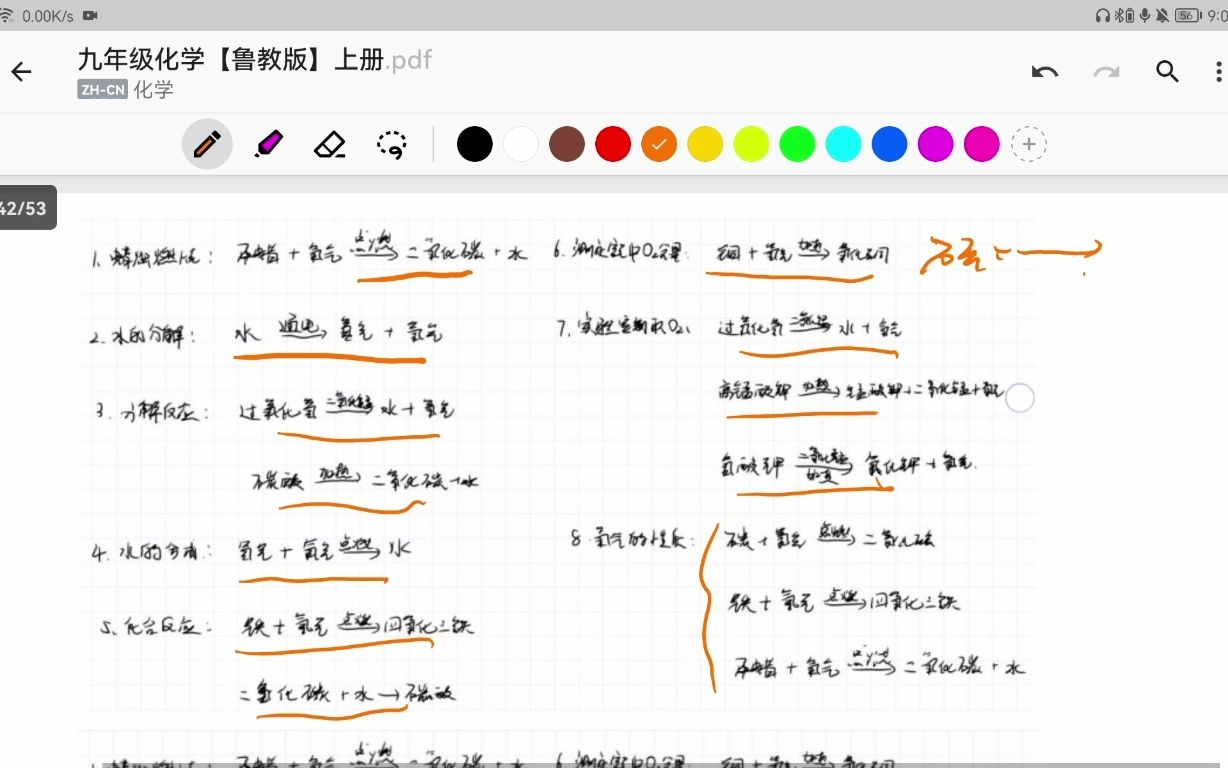 0.00K/s 56 9:0
九年级化学【鲁教版】上册.pdf
ZH-CN 化学
42/53
1. 蜡烛燃烧: 石蜡 + 氧气 点燃→ 二氧化碳 + 水
2. 水的分解: 水 通电→ 氢气 + 氧气
3. 分解反应: 过氧化氢 二氧化锰→ 水 + 氧气
碳酸 加热→ 二氧化碳 + 水
4. 水的合成: 氢气 + 氧气 点燃→ 水
5. 化合反应: 铁 + 氧气 点燃→ 四氧化三铁
二氧化碳 + 水 → 碳酸
6. 测定空中O2含量: 铜 + 氧气 加热→ 氧化铜
7. 实验室制取O2: 过氧化氢 二氧化锰→ 水 + 氧气
高锰酸钾 加热→ 锰酸钾 + 二氧化锰 + 氧气
氯酸钾 二氧化锰 加热→ 氯化钾 + 氧气.
8. 氧气的性质: 碳 + 氧气 点燃→ 二氧化碳
铁 + 氧气 点燃→ 四氧化三铁
石蜡 + 氧气 点燃→ 二氧化碳 + 水